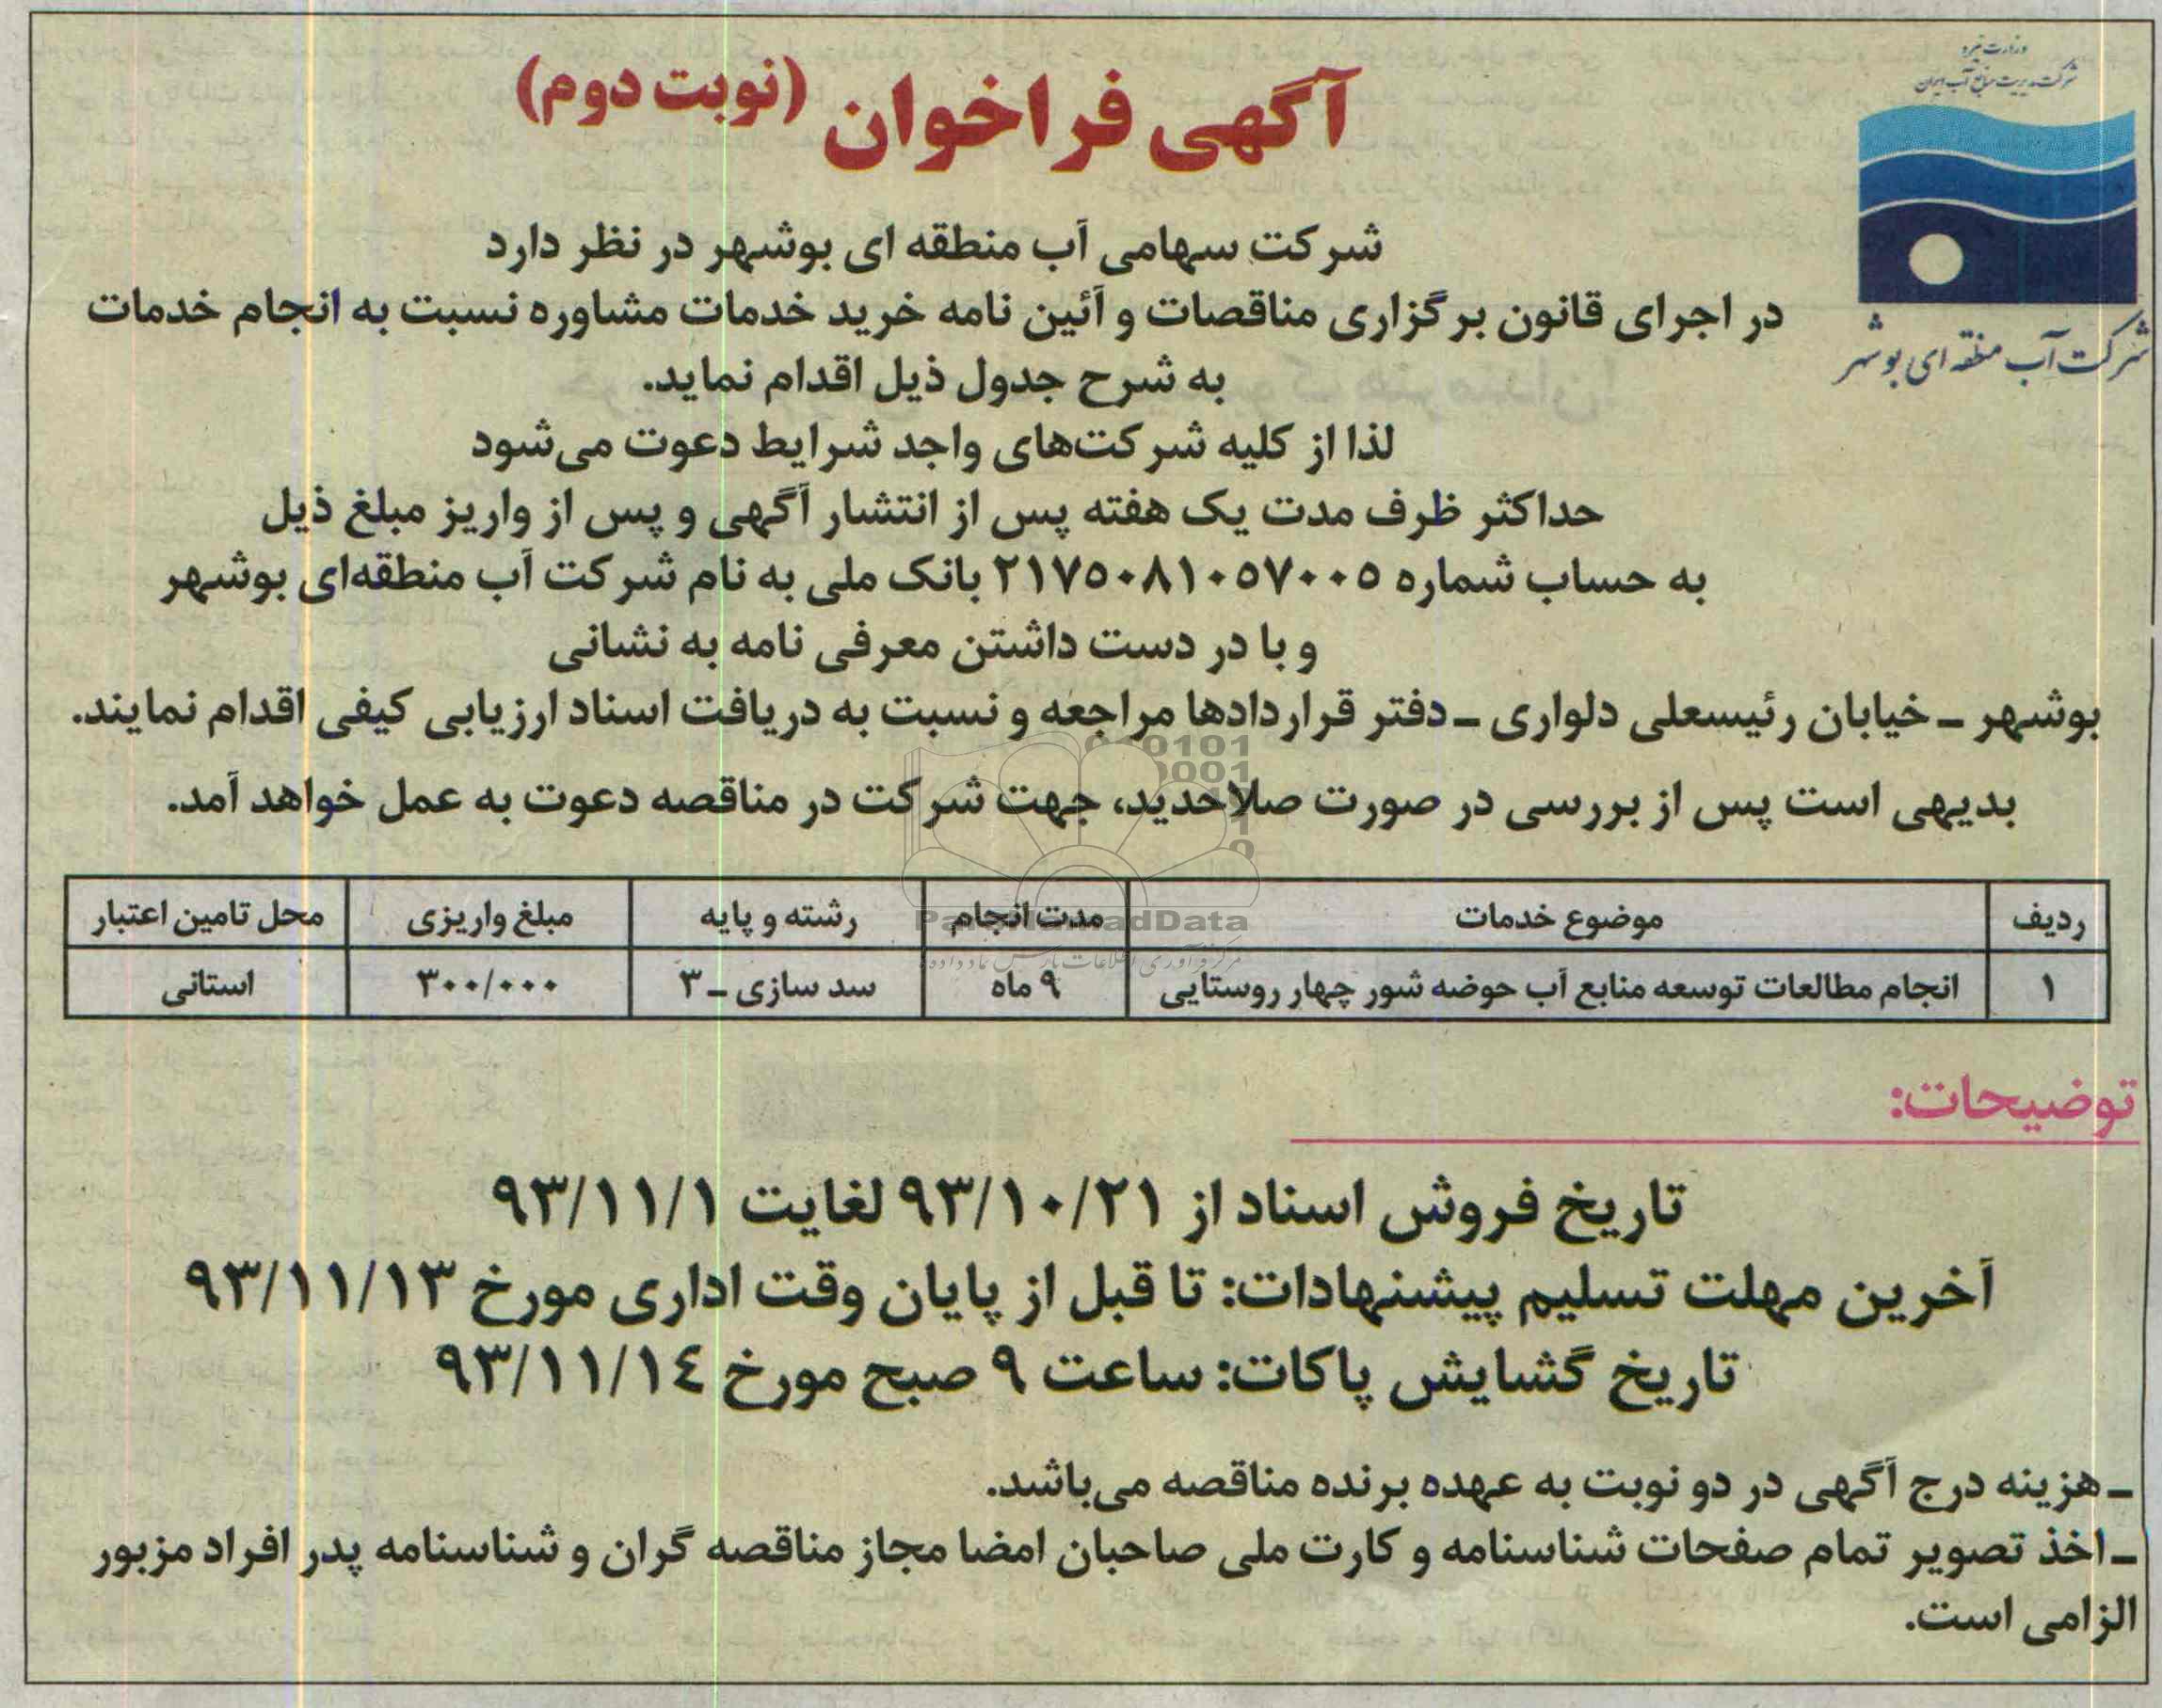 وزارت نیرو
شرکت مدیریت منابع آب ایران
شرکت آب منطقه ای بوشهر
آگهی فراخوان (نوبت دوم)
شرکت سهامی آب منطقه ای بوشهر در نظر دارد
در اجرای قانون برگزاری مناقصات و آئین نامه خرید خدمات مشاوره نسبت به انجام خدمات
به شرح جدول ذیل اقدام نماید.
لذا از کلیه شرکت‌های واجد شرایط دعوت می‌شود
حداکثر ظرف مدت یک هفته پس از انتشار آگهی و پس از واریز مبلغ ذیل
به حساب شماره ۲۱۷۵۰۸۱۰۵۷۰۰۵ بانک ملی به نام شرکت آب منطقه‌ای بوشهر
و با در دست داشتن معرفی نامه به نشانی
بوشهر ـ خیابان رئیسعلی دلواری ـ دفتر قراردادها مراجعه و نسبت به دریافت اسناد ارزیابی کیفی اقدام نمایند.
بدیهی است پس از بررسی در صورت صلاحدید، جهت شرکت در مناقصه دعوت به عمل خواهد آمد.
ردیف موضوع خدمات مدت انجام رشته و پایه مبلغ واریزی محل تامین اعتبار
۱ انجام مطالعات توسعه منابع آب حوضه شور چهار روستایی ۹ ماه سد سازی ـ ۳ ۳۰۰/۰۰۰ استانی
ParsNamadData
مرکز فرآوری اطلاعات پارس نماد داده
توضیحات:
تاریخ فروش اسناد از ۹۳/۱۰/۲۱ لغایت ۹۳/۱۱/۱
آخرین مهلت تسلیم پیشنهادات: تا قبل از پایان وقت اداری مورخ ۹۳/۱۱/۱۳
تاریخ گشایش پاکات: ساعت ۹ صبح مورخ ۹۳/۱۱/۱٤
ـ هزینه درج آگهی در دو نوبت به عهده برنده مناقصه می‌باشد.
ـ اخذ تصویر تمام صفحات شناسنامه و کارت ملی صاحبان امضا مجاز مناقصه گران و شناسنامه پدر افراد مزبور
الزامی است.